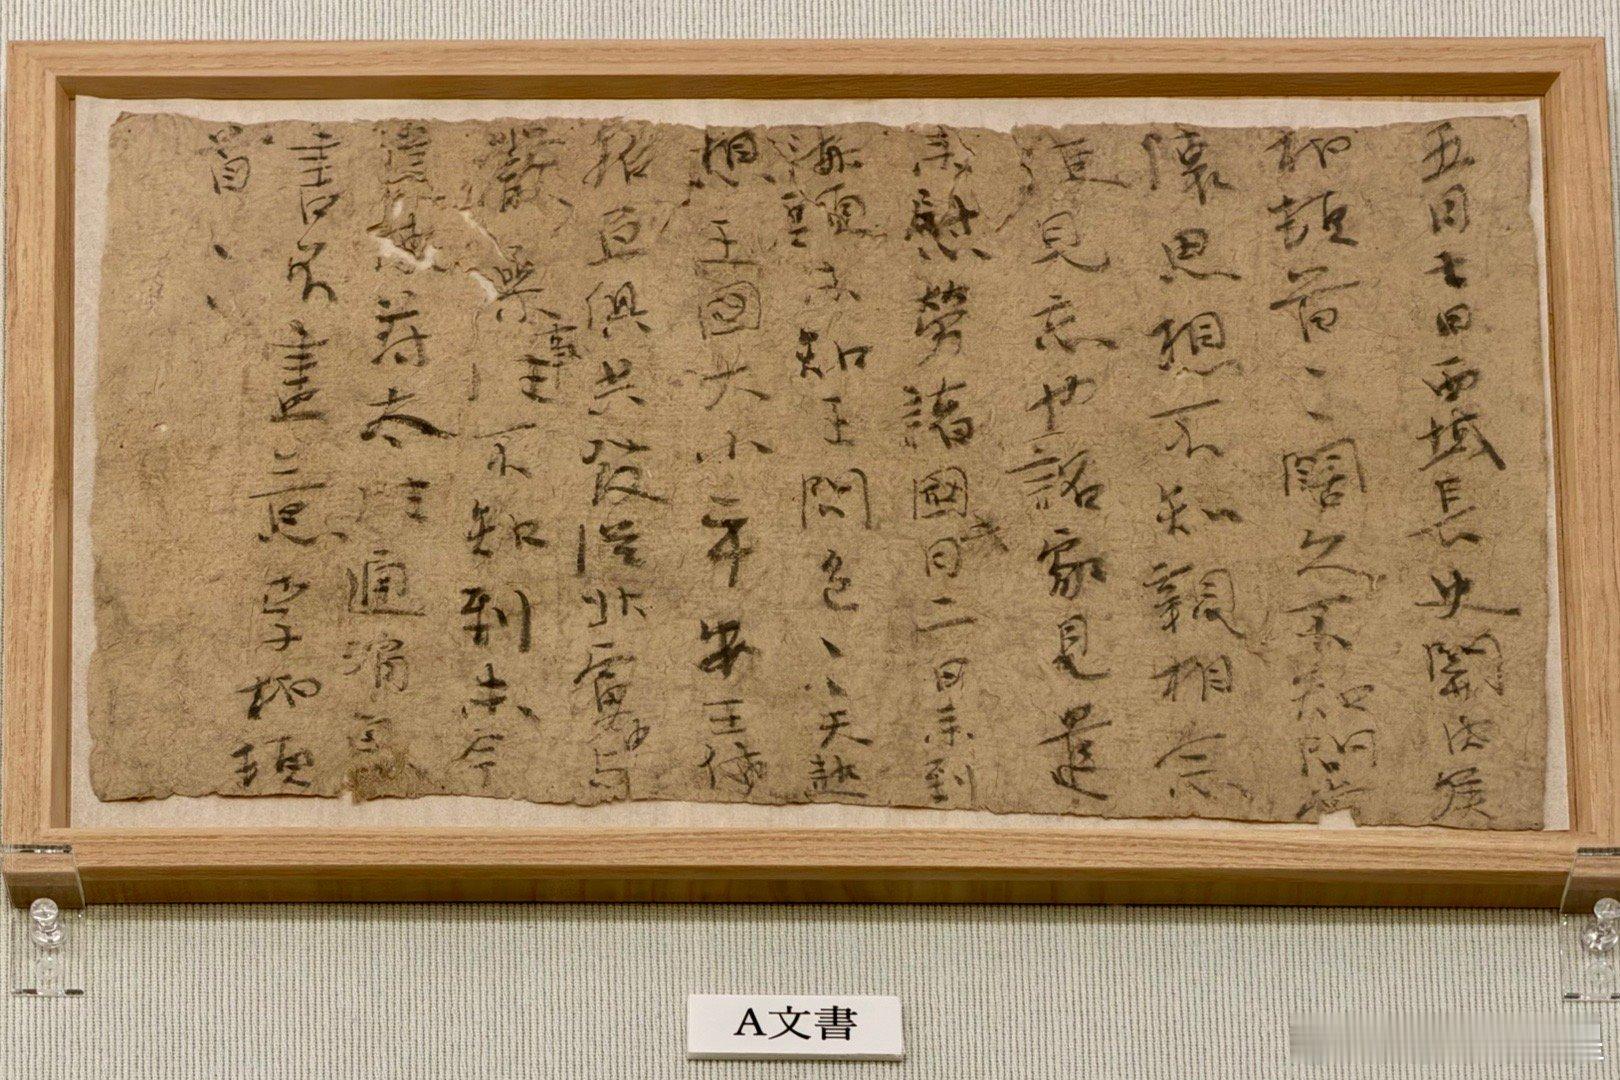 五月七日西域長史關内侯
柏頓首、、闊久不知問常
懷思想不知親相念
便見忘也詔家見遣
來慰勞諸國此月二日來到
海頭未知王問邑、、天熱
想王國大小平安王使
招亘俱共發從北虜中與
嚴參事往不知到未今
遣使苻太往通消息
書不盡意李柏頓
首、、
A文書